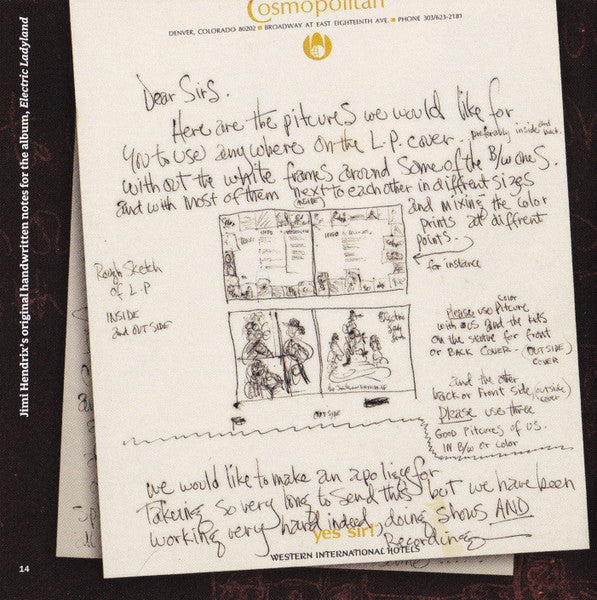 Cosmopolitan
DENVER, COLORADO 80202 ■ BROADWAY AT EAST EIGHTEENTH AVE. ■ PHONE 303/623-2181
Dear Sirs.
Here are the pitcures we would like for
you to use anywhere on the L.P. cover. preferably inside and back.
without the white frames around some of the B/w ones.
and with most of them next to each other in diffrent sizes
(INSIDE)
and mixing the color
prints at diffrent
points.
for instance
Rough Sketch
of L.P
INSIDE
and OUTSIDE
Color
Please use Pitcure
with us and the kids
on the statue for front
or BACK COVER. (OUTSIDE)
COVER
and the other
back or front side (outside)
cover
Please use three
Good Pitcures of us.
IN B/w or color
Electric
Lady
Land
OUTSIDE
we would like to make an apoligie for
Takeing so very long to send this but we have been
working very hard indeed, doing shows AND
Recording
yes sir!
WESTERN INTERNATIONAL HOTELS
Jimi Hendrix's original handwritten notes for the album, Electric Ladyland
14